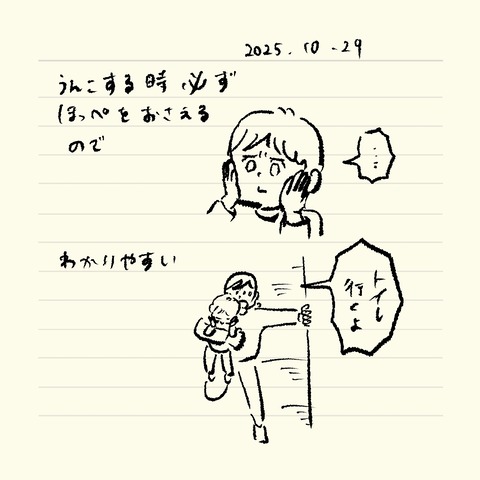 2025.10.29
うんこする時 必ず
ほっぺをおさえる
ので
…
わかりやすい
トイレ
行くよ